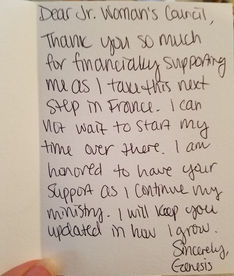 Dear Jr. Woman's Council,
Thank you so much
for financially supporting
me as I take this next
step in France. I can
not wait to start my
time over there. I am
honored to have your
support as I continue my
ministry. I will keep you
updated in how I grow.
Sincerely,
Genesis